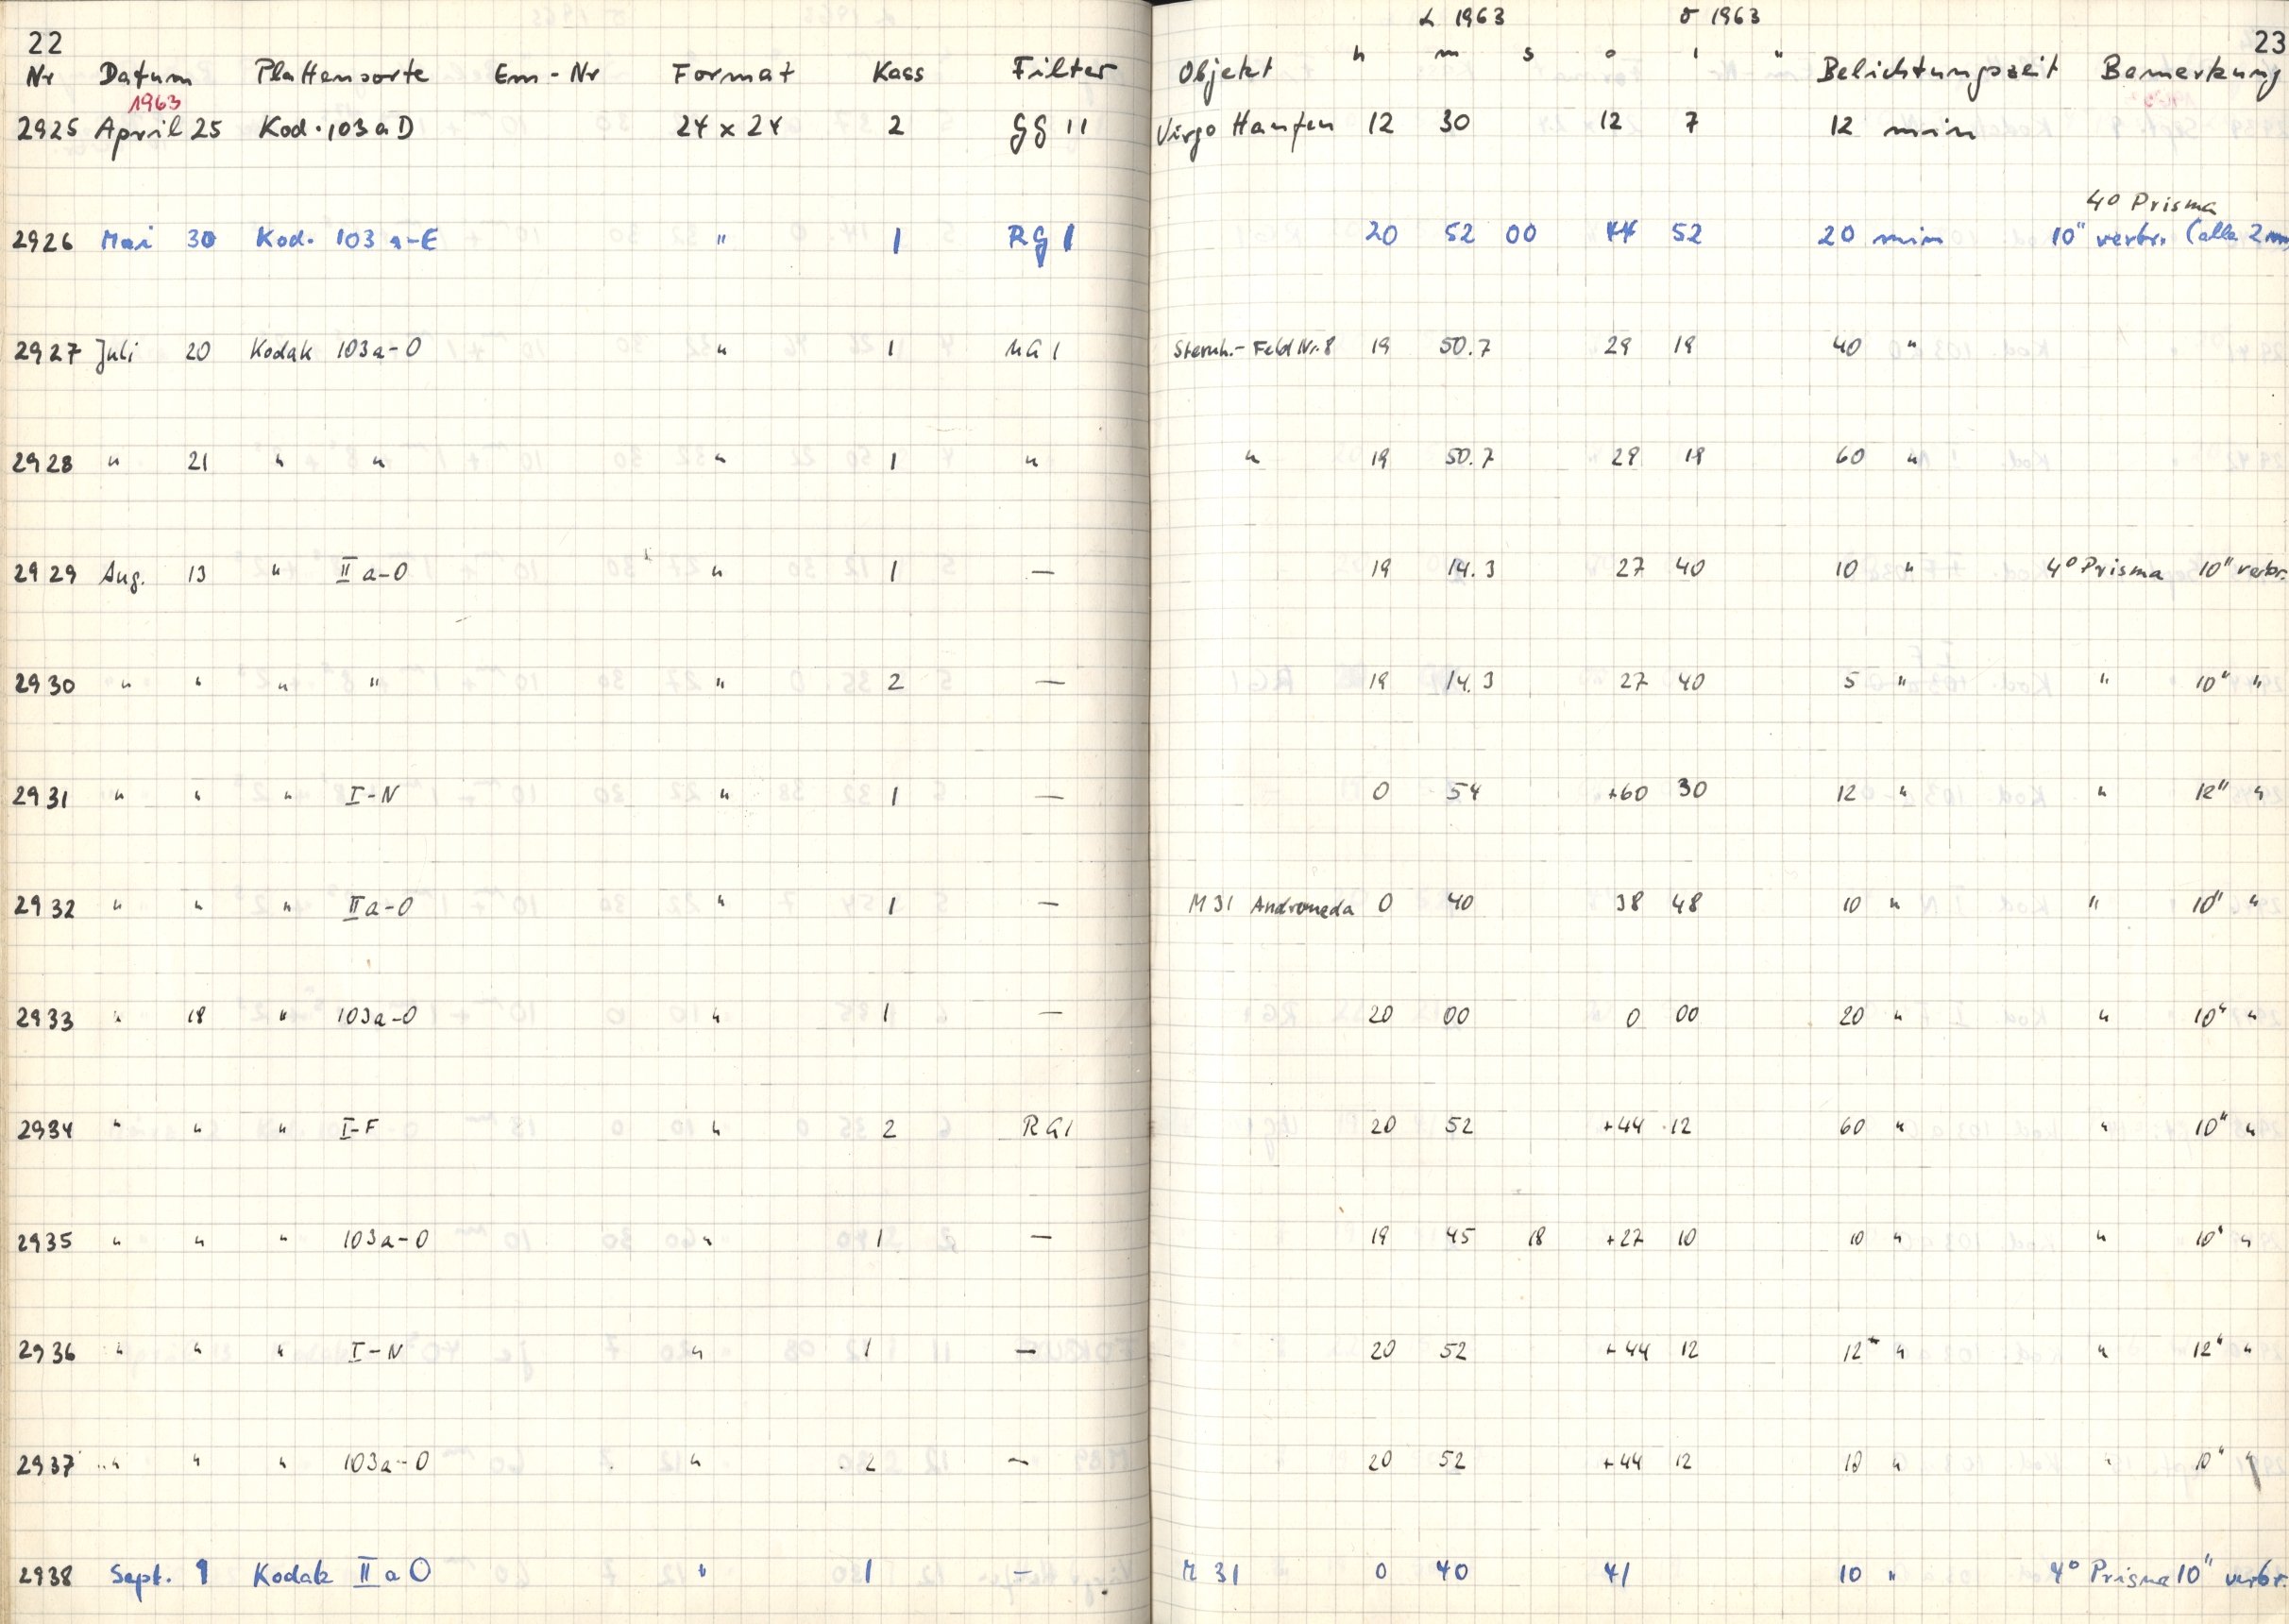 22
α 1963 δ 1963
h m s ° ' " 23
Nr Datum Plattensorte Em-Nr Format Kass Filter Objekt Belichtungszeit Bemerkung
1963
2925 April 25 Kod. 103aD 24 x 24 2 GG 11 Virgo Haufen 12 30 12 7 12 min
4° Prisma
2926 Mai 30 Kod. 103a-E " 1 RG 1 20 52 00 44 52 20 min 10" verbr. (alle 2 mm
2927 Juli 20 Kodak 103a-O " 1 UG 1 Sternh.-Feld Nr. 8 19 50.7 29 19 40 "
2928 " 21 " " " 1 " " 19 50.7 29 19 60 "
2929 Aug. 13 " II a-O " 1 — 19 14.3 27 40 10 " 4° Prisma 10" verbr.
2930 " " " " " 2 — 19 14.3 27 40 5 " " 10" "
2931 " " " I-N " 1 — 0 54 +60 30 12 " " 12" "
2932 " " " IIa-O " 1 — M 31 Andromeda 0 40 38 48 10 " " 10" "
2933 " 18 " 103a-O " 1 — 20 00 0 00 20 " " 10" "
2934 " " " I-F " 2 RG1 20 52 +44 12 60 " " 10" "
2935 " " " 103a-O " 1 — 19 45 18 +27 10 10 " " 10" "
2936 " " " I-N " 1 — 20 52 +44 12 12 " " 12" "
2937 " " " 103a-O " 2 — 20 52 +44 12 10 " " 10" "
2938 Sept. 9 Kodak II a O " 1 — M 31 0 40 41 10 " 4° Prisma 10" verbr.